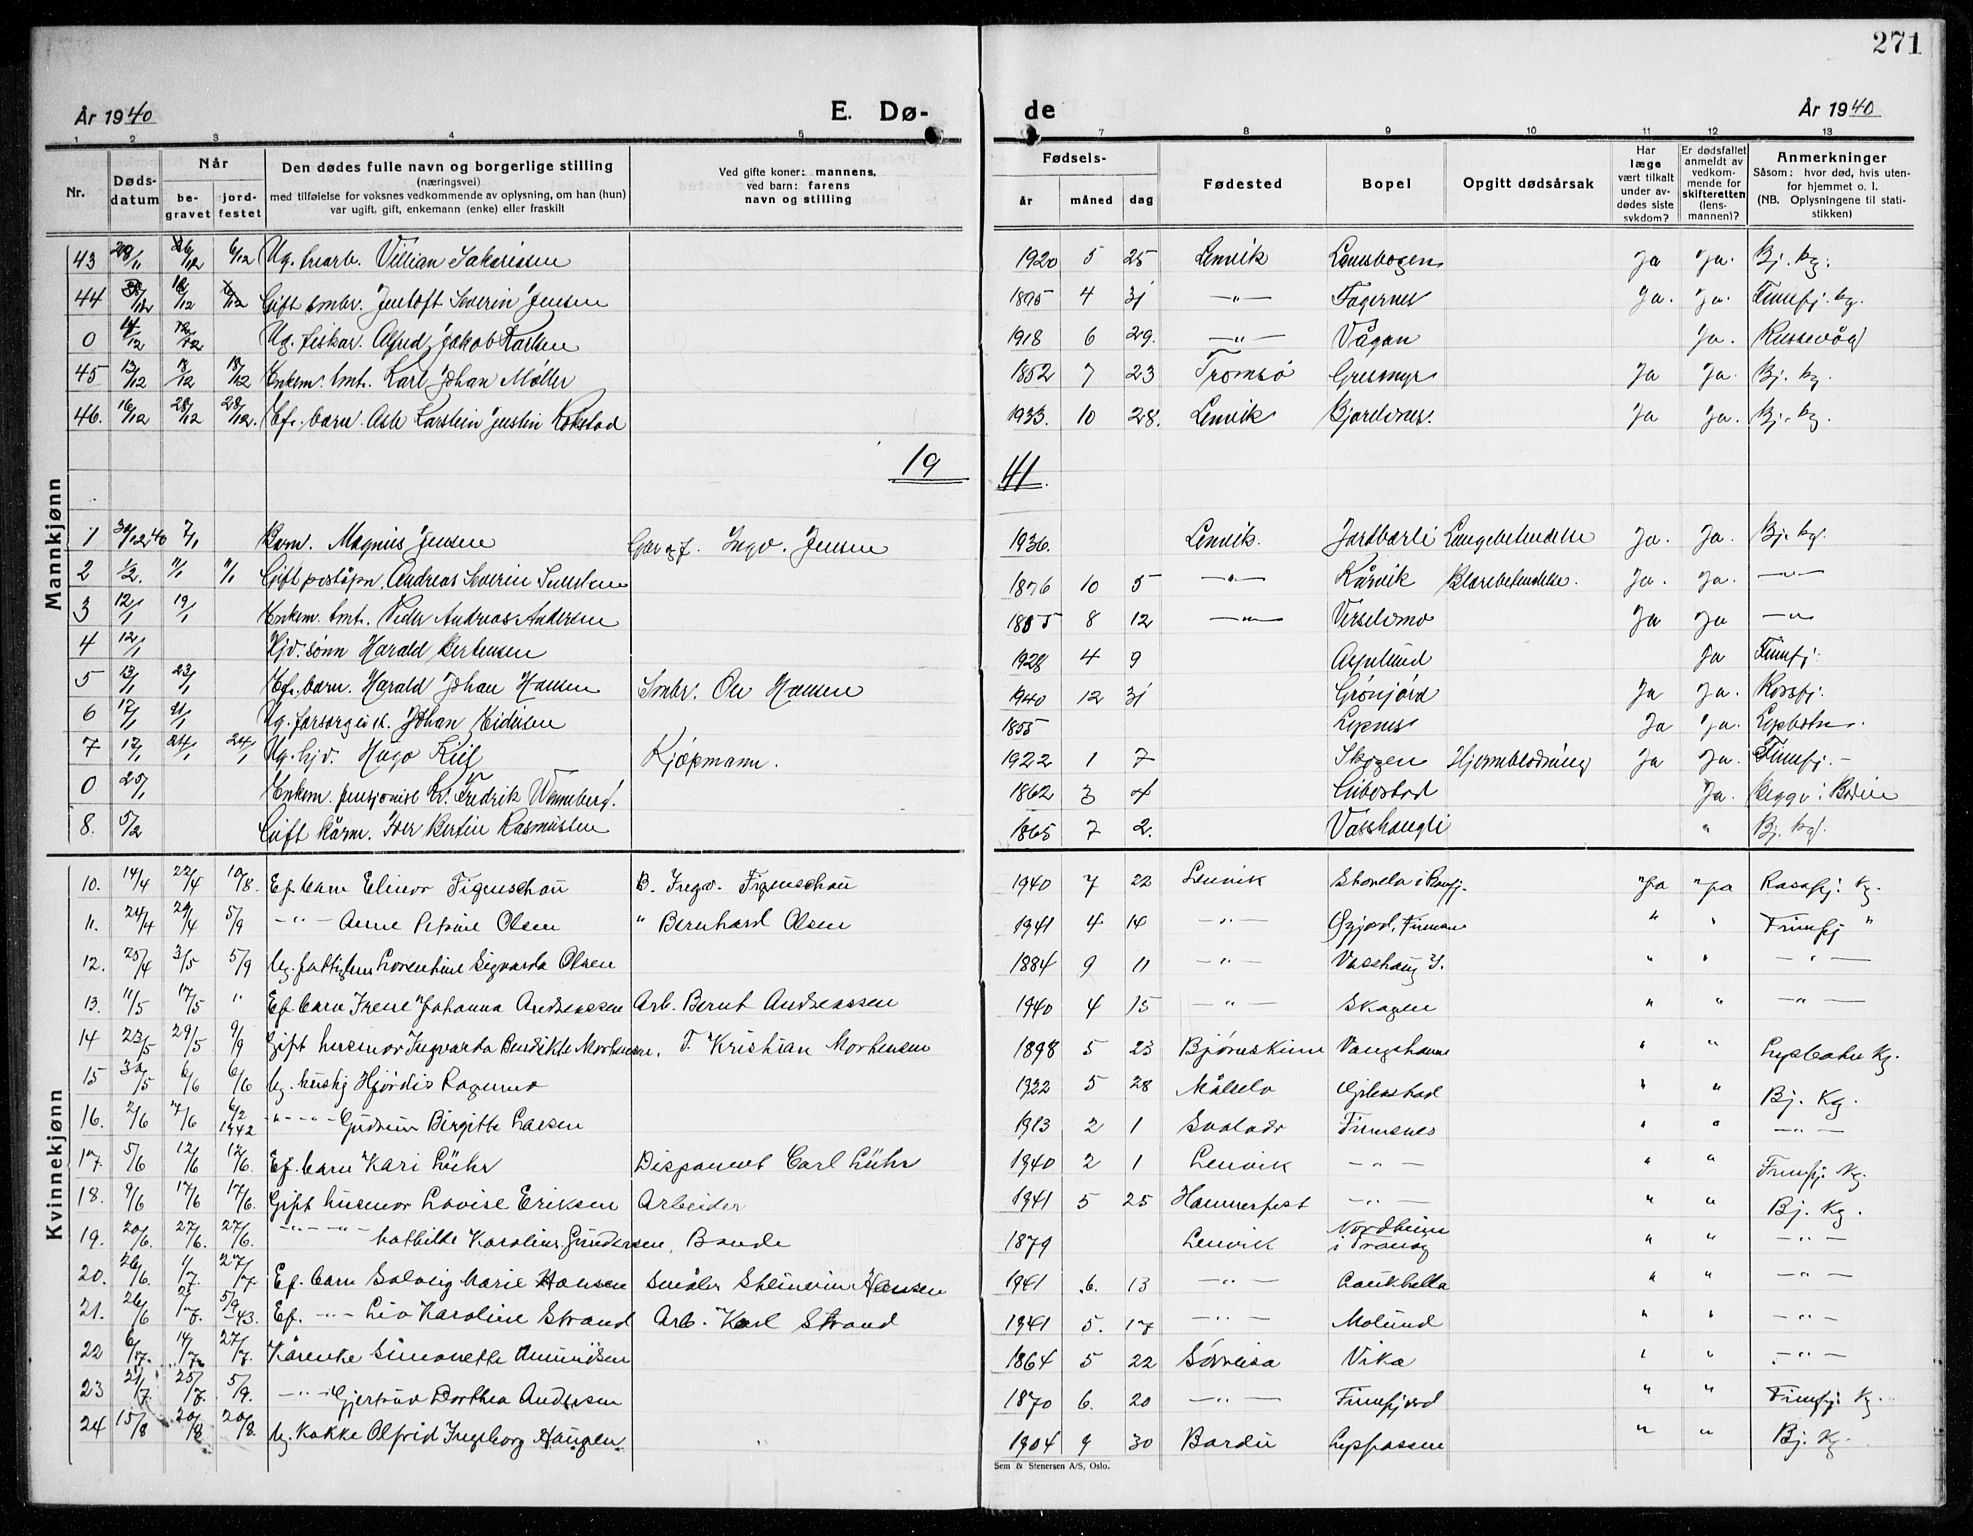 271
År 1940 E. Dø- de År 1940
1 2 3 4 5 7 8 9 10 11 12 13
Nr. Døds-datum Når be-gravet jord-festet Den dødes fulle navn og borgerlige stilling (næringsvei) med tilføielse for voksnes vedkommende av oplysning, om han (hun) var ugift, gift, enkemann (enke) eller fraskilt Ved gifte koner: mannens, ved barn: farens navn og stilling Fødsels- år måned dag Fødested Bopel Opgitt dødsårsak Har læge vært tilkalt under av-dødes siste sykdom? Er dødsfallet anmeldt av vedkom-mende for skifteretten (lens-mannen)? Anmerkninger Såsom: hvor død, hvis uten-for hjemmet o. l. (NB. Oplysningene til stati-stikken)
Mannkjønn
43 28/11 6/12 6/12 Ug. Villian Sakariassen 1920 5 25 Lenvik Ja Ja. Bj. kg.
44 Gift smbr. Jentoft Severin Jensen 1895 4 31 -"- Fagernes Ja. Ja. Finnfj. kg.
0 14/12 Ug. fisker. Alfred Jakob Karlsen 1918 6 29. -"- Vågan Ja.
45 13/12 18/12 18/12 Enkem. Karl Johan Møller 1852 7 23 Tromsø Gresmyr Ja Ja. Bj. kg.
46. 16/12 28/12 28/12. Ef. barn. Karstein Justin Rokstad 1933. 10 28. Lenvik Bjorelvnes. Ja Ja. Bj. kg.
19 41.
1 30/12 40 7/1 Barn. Magnus Jensen Ingv. Jensen 1936. Lenvik. Jordbærli Lungebetendelse Ja. Ja. Bj. kg.
2 1/2. 11/1 11/1 Gift poståpn. Andreas Severin 1876 10 5 -"- Kårvik Blærebetendelse. Ja. Ja. -"-
3 12/1 19/1 Enkem. Peder Andreas Andersen 1855 8 12 -"- Verselvmo Ja Ja -"-
4 12/1 Hjv. sønn Harald Berntsen 1928 4 9 Asplund Ja Finnfj.
5 13/1 23/1 Ef. barn. Harald Johan Hansen Smbr. Ole Hansen 1940 12 31 Grønjord Ja Ja. Rossfj.
6 17/1 21/1 Ug. forsorgsv. Johan Pedersen 1855 Lysnes Ja Ja. Lysbotn.
7 17/1 24/1 24/1 Ug. hjv. Hugo Kiil Kjøpmann. 1922 1 7 Skogen Hjerneblødning Ja Ja. Finnfj. -
0 25/1 Enkem. pensjonist Kr. Fredrik Wenneberg. 1862 3 4 Gibostad Ja.
8. 5/2 Gift kårm. Iver Bertin Rasmussen 1865 7 2. Vasshaugli " Bj. kg.
Kvinnekjønn
10. 14/4 22/4 10/8. Ef. barn Elinor Figenschau B. Ingv. Figenschau 1940 7 22 Lenvik "Ja "Ja Rossfj. kg.
11. 24/4 29/4 5/9 -"- Anne Petrine Olsen " Bernhard Olsen 1941 4 14 -"- " " Finnfj "
12. 25/4 3/5 5/9 Ug. fattiglem Lorentine Sigvarda Olsen 1884 9 11 -"- Vasshaug " " -"-
13. 11/5 17/5 " Ef. barn Irene Johanna Andreassen Arb. Bernt Andreassen 1940 4 15 -"- Skogen " " -"-
14 23/5 29/5 9/9 Gift husmor Ingvarda Benedikte Mortensen. F. Kristian Mortensen 1898 5 23 Bjørneskinn Vangshavn " " Lysbotn Kg.
15 /5 6/6 6/6 Ug. hushj Hjørdis 1922 5 28 Målselv Gibostad " " Bj. Kg.
16. 2/6 7/6 6/2 1942 -"- Gudrun Birgitte Larsen 1913 2 1 Svolvær Finnsnes " " -"-
17. 5/6 12/6 12/6. Ef. barn Kari Lühr Disponent Carl Lühr 1940 2 1 Lenvik -"- " " Finnfj Kg.
18. 9/6 17/6 17/6. Gift husmor Lovise Eriksen Arbeider 1941 5 25 Hammerfest -"- " " Bj. Kg.
19. 20/6. 27/6. 27/6. -"- -"- Mathilde Karoline Gundersen, Bonde 1879 Lenvik Nordheim i Tranøy " " -"-
20. 26/6. 1/7. 27/7. Ef. barn Solveig Marie Hansen småbr Hansen 1941 6. 13 -"- Laukhella " " -"-
21. 26/6 5/9 -43. Ef. -"- Liv Karoline Strand Arb. Karl Strand 1941 5. 17 -"- Molund " " -"-
22 6/7. 14/7. 27/7. Kårenke Simonette Amundsen 1864 5 22 Sørreisa Vika " " -"-
23 21/7. 25/7. 5/9. -"- Gjertrud Dorthea Andersen 1870 6. 20 -"- Finnfjord " " Finnfj. Kg.
24 15/8 20/8 20/8. Ug. Kokke Olfrid Ingeborg Haugen. 1904 9 30 Bardu Lysfossen " " Bj. Kg.
Sem & Stenersen A/S, Oslo.